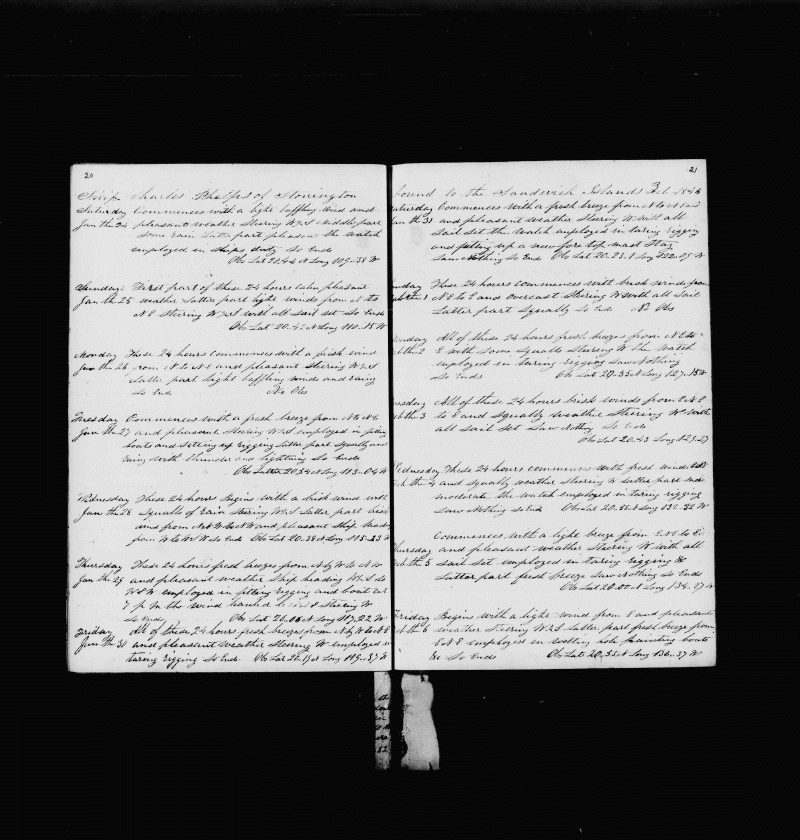 20
Ship Charles Phelps of Stonington
Saturday Commences with a light baffling wind and
Jan the 24 pleasant weather Steering W.S Middle part
Some rain Latter part pleasant the watch
employed in ships duty So Ends
Obs Lat 20.44 N Long 109..38 W
Sunday First part of these 24 hours calm pleasant
Jan the 25 weather Latter part light winds from N to
N E Steering W.S with all sail set So Ends
Obs Lat 20.42 N Long 110..15 W
Monday These 24 hours Commences with a brisk wind
Jan the 26 from N to N E and pleasant Steering W.S
Latter part light baffling winds and rainy
So Ends No Obs
Tuesday Commences with a fresh breeze from N to N E
Jan the 27 and pleasant Steering W.S employed in fitting
boats and setting up rigging Latter part Squally and
rainy with thunder and lightning So Ends
Obs Latter 20.34 N Long 113..04 W
Wednesday These 24 hours Begins with a brisk wind with
Jan the 28 Squalls of Rain Steering W.S Latter part brisk
wind from N to N W and pleasant Ship heading
from W to W So Ends Obs Lat 20.38 N Long 115..23 W
Thursday These 24 hours fresh breezes from N by W to N
Jan the 29 and pleasant weather Ship heading W.S
employed in fitting rigging and boats at
7 P M the wind hauled to Steering W
So Ends Obs Lat 20.08 N Long 117..22 W
Friday All of these 24 hours fresh breezes from N by W to N E
Jan the 30 and pleasant weather Steering W employed in
taring rigging So Ends Obs Lat 20.19 N Long 119..37 W
21
bound to the Sandwich Islands Feb 1846
Saturday Commences with a fresh breeze from N to N
Jan th 31 and pleasant weather Steering W with all
sail set the watch employed in taring rigging
and putting up a new fore top mast Stay
Saw Nothing So Ends Obs Lat 20.23 N Long 122..07 W
These 24 hours commences with brisk winds from
N E to E and overcast Steering W with all Sail
Latter part Squally So Ends No Obs
All of these 24 hours fresh breezes from N E to
E with Some Squalls Steering W the Watch
employed in taring rigging Saw Nothing
So Ends Obs Lat 20.35 N Long 127..15 W
All of these 24 hours brisk winds from E N E
to E and Squally weather Steering W with
all sail set Saw Nothing So Ends
Obs Lat 20.43 Long 129..27
Wednesday These 24 hours commences with fresh winds
and Squally weather Steering W Latter part
moderate the watch employed in taring rigging
Saw Nothing So Ends Obs Lat 20.55 N Long 132..22 W
Commences with a light breeze from E N E to E
Thursday and pleasant weather Steering W with all
sail set employed in taring rigging &c
Latter part fresh breeze Saw Nothing So Ends
Obs Lat 20.00 N Long 134..27 W
Friday Begins with a light wind from E and pleasant
weather Steering W.S Latter part fresh breeze from
E N E employed in painting boats
&c So Ends Obs Lat 20.35 N Long 136..37 W